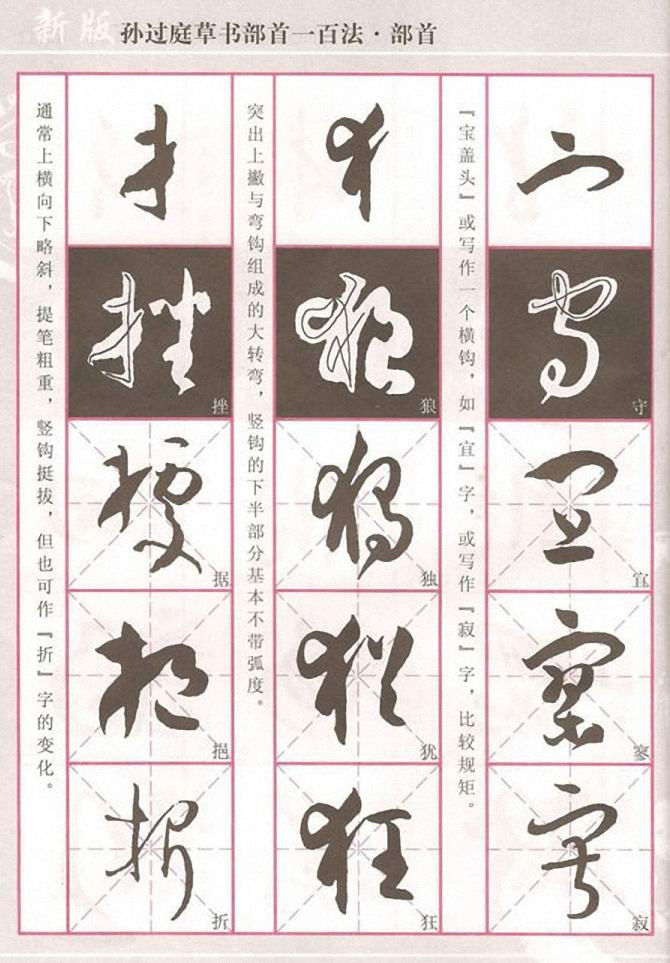 新版 孙过庭草书部首一百法·部首
宀
守
宜
寥
寂
『宝盖头』或写作一个横钩，如『宜』字，或写作『寂』字，比较规矩。
犭
狼
独
犹
狂
突出上撇与弯钩组成的大转弯，竖钩的下半部分基本不带弧度。
扌
挫
据
挹
折
通常上横向下略斜，提笔粗重，竖钩挺拔，但也可作『折』字的变化。